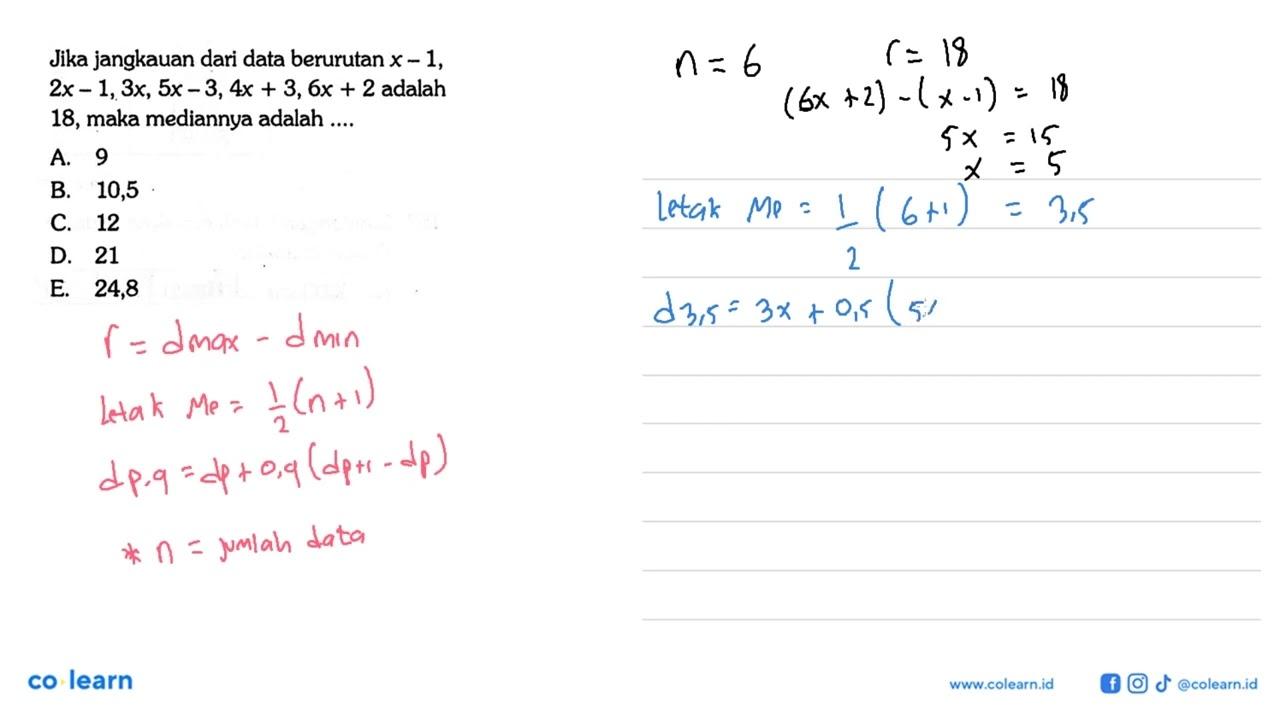 Jika jangkauan dari data berurutan x – 1,
2x – 1, 3x, 5x – 3, 4x + 3, 6x + 2 adalah
18, maka mediannya adalah ....
A. 9
B. 10,5
C. 12
D. 21
E. 24,8
r = dmax - dmin
letak Me = 1/2 (n+1)
dp,q = dp + 0,q (dp+1 - dp)
* n = jumlah data
n = 6 r = 18
(6x + 2) - (x - 1) = 18
5x = 15
x = 5
letak Me = 1/2 (6+1) = 3,5
d3,5 = 3x + 0,5 (5
co learn
www.colearn.id @colearn.id